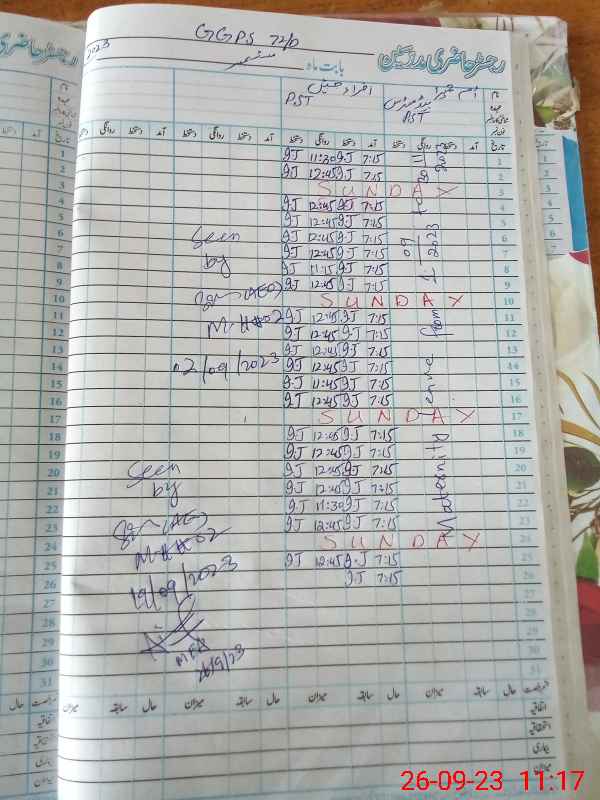 GGPS 72/D
2023
رجسٹر حاضری مدرسین
بابت ماہ ستمبر
PST
PST
تاریخ آمد دستخط روانگی دستخط آمد دستخط روانگی دستخط آمد دستخط روانگی دستخط
1 7:15 9J 11:30 9J
2 7:15 9J 12:45 9J
3 SUNDAY
4 7:15 9J 12:45 9J
5 7:15 9J 12:45 9J
6 7:15 9J 12:45 9J
7 7:15 9J 12:45 9J
8 7:15 9J 11:15 9J
9 7:15 9J 12:45 9J
10 SUNDAY
11 7:15 9J 12:45 9J
12 7:15 9J 12:45 9J
13 7:15 9J 12:45 9J
14 7:15 9J 12:45 9J
15 7:15 9J 11:45 9J
16 7:15 9J 12:45 9J
17 SUNDAY
18 7:15 9J 12:45 9J
19 7:15 9J 12:45 9J
20 7:15 9J 12:45 9J
21 7:15 9J 12:45 9J
22 7:15 9J 11:30 9J
23 7:15 9J 12:45 9J
24 SUNDAY
25 7:15 9J 12:45 9J
26 7:15 9J
27
28
29
30
31
Maternity Leave from 1 09 2023 to
Seen
by
(AEO)
02/09/2023
Seen
by
(AEO)
19/09/2023
26/9/23
حال سابقہ میزان حال سابقہ میزان حال سابقہ میزان
اتفاقیہ
استحقاقیہ
بیماری
میزان
26-09-23 11:17